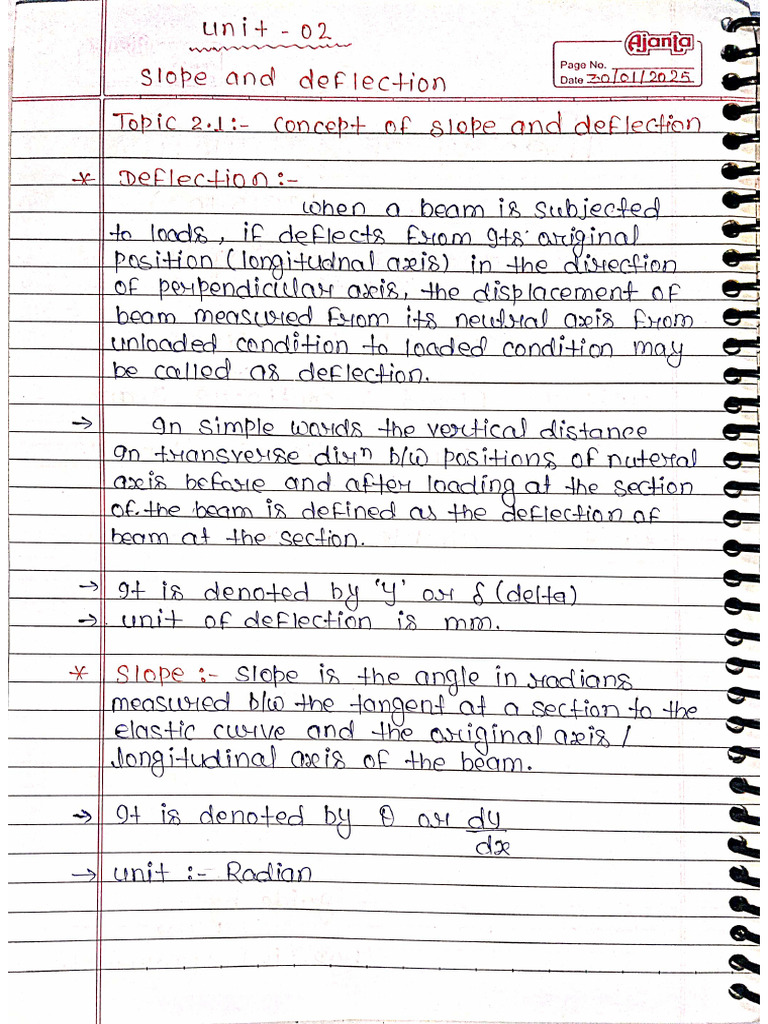 Unit - 02
Ajanta
Slope and deflection
Page No.
Date 30/01/2025
Topic 2.1:- Concept of slope and deflection
* Deflection :-
When a beam is subjected
to loads, if deflects from its original
position (longitudnal axis) in the direction
of perpendicular axis, the displacement of
beam measured from its neutral axis from
unloaded condition to loaded condition may
be called as deflection.
→ In simple words the vertical distance
In transverse dirⁿ b/w positions of nuteral
axis before and after loading at the section
of the beam is defined as the deflection of
beam at the section.
→ It is denoted by 'y' or δ (delta)
→ unit of deflection is mm.
* Slope :- Slope is the angle in radians
measured b/w the tangent at a section to the
elastic curve and the original axis /
longitudinal axis of the beam.
→ It is denoted by θ or dy
dx
→ unit :- Radian